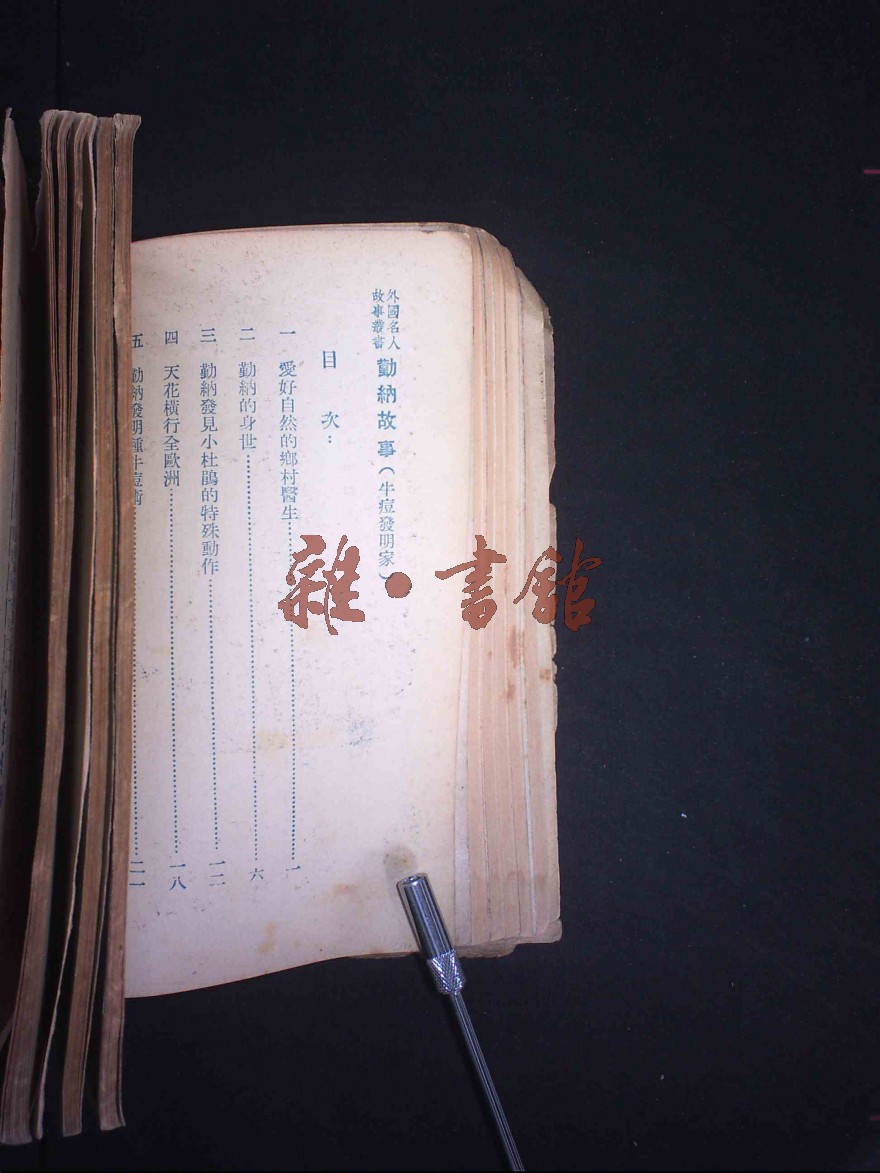 外國名人
故事叢書
勤納故事（牛痘發明家）
目 次：
一 愛好自然的鄉村醫生……一
二 勤納的身世……六
三 勤納發見小杜鵑的特殊動作……一二
四 天花橫行全歐洲……一八
五 勤納發明種牛痘術……二一
雜·書館